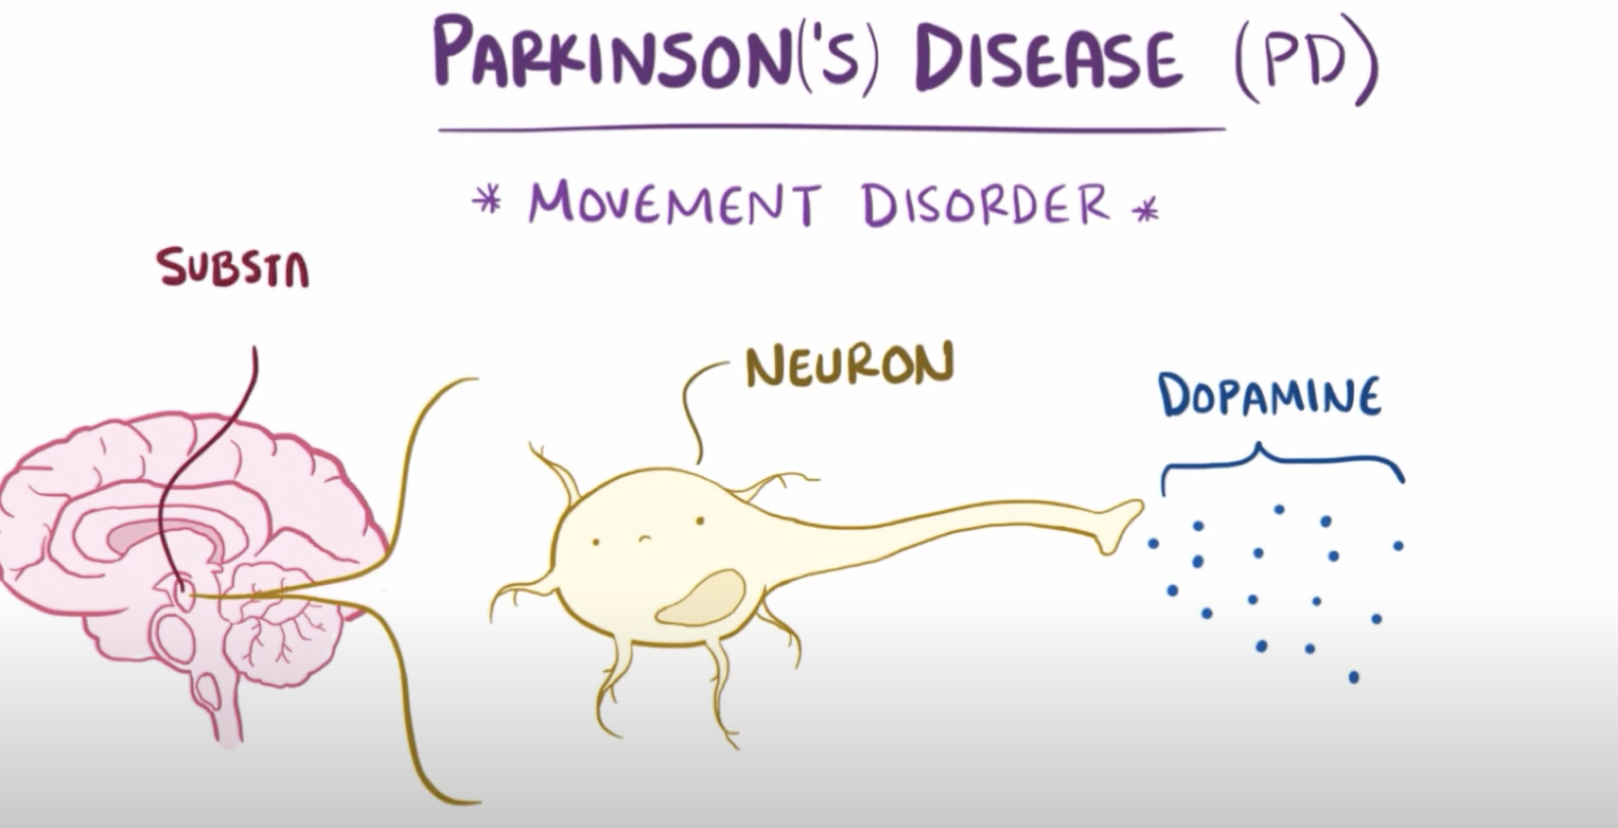 PARKINSON('S) DISEASE (PD)
* MOVEMENT DISORDER *
SUBSTA
NEURON
DOPAMINE